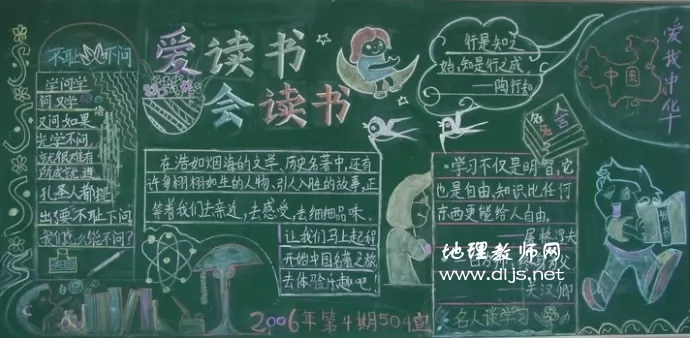 不耻下问
学问学
问又学
又问如果
光学不问
就很难有
所成就 连
孔圣人都提
出要不耻下问
我们怎么能不问?
爱读书
会读书
在浩如烟海的文学、历史名著中,还有
许多栩栩如生的人物、引人入胜的故事,正
等着我们去亲近,去感受,去细细品味。
让我们马上起程
开始中国名著之旅
去体验乐趣吧!
2006年第4期504宣
行是知之
始,知是行之成。
——陶行知
名人名言
学习不仅是明智,它
也是自由。知识比任何
东西更能给人自由。
——屠格涅夫
——关汉卿
名人谈学习
爱我中华
中国
知识
地理教师网
www.dljs.net